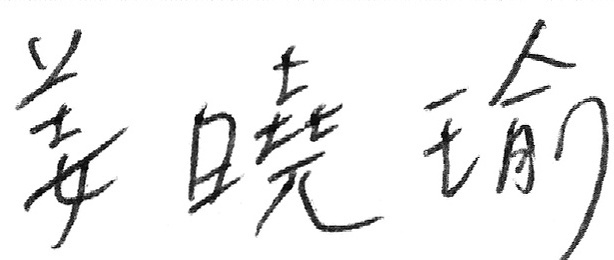 姜曉瑜